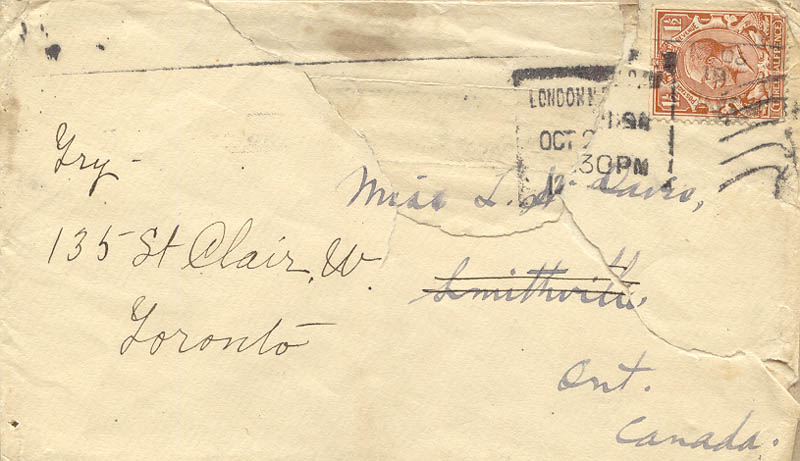 1½
LONDON
OCT
30PM
Try -
135 St Clair, W.
Toronto
Miss L. Davis,
Smithville,
Ont.
Canada.